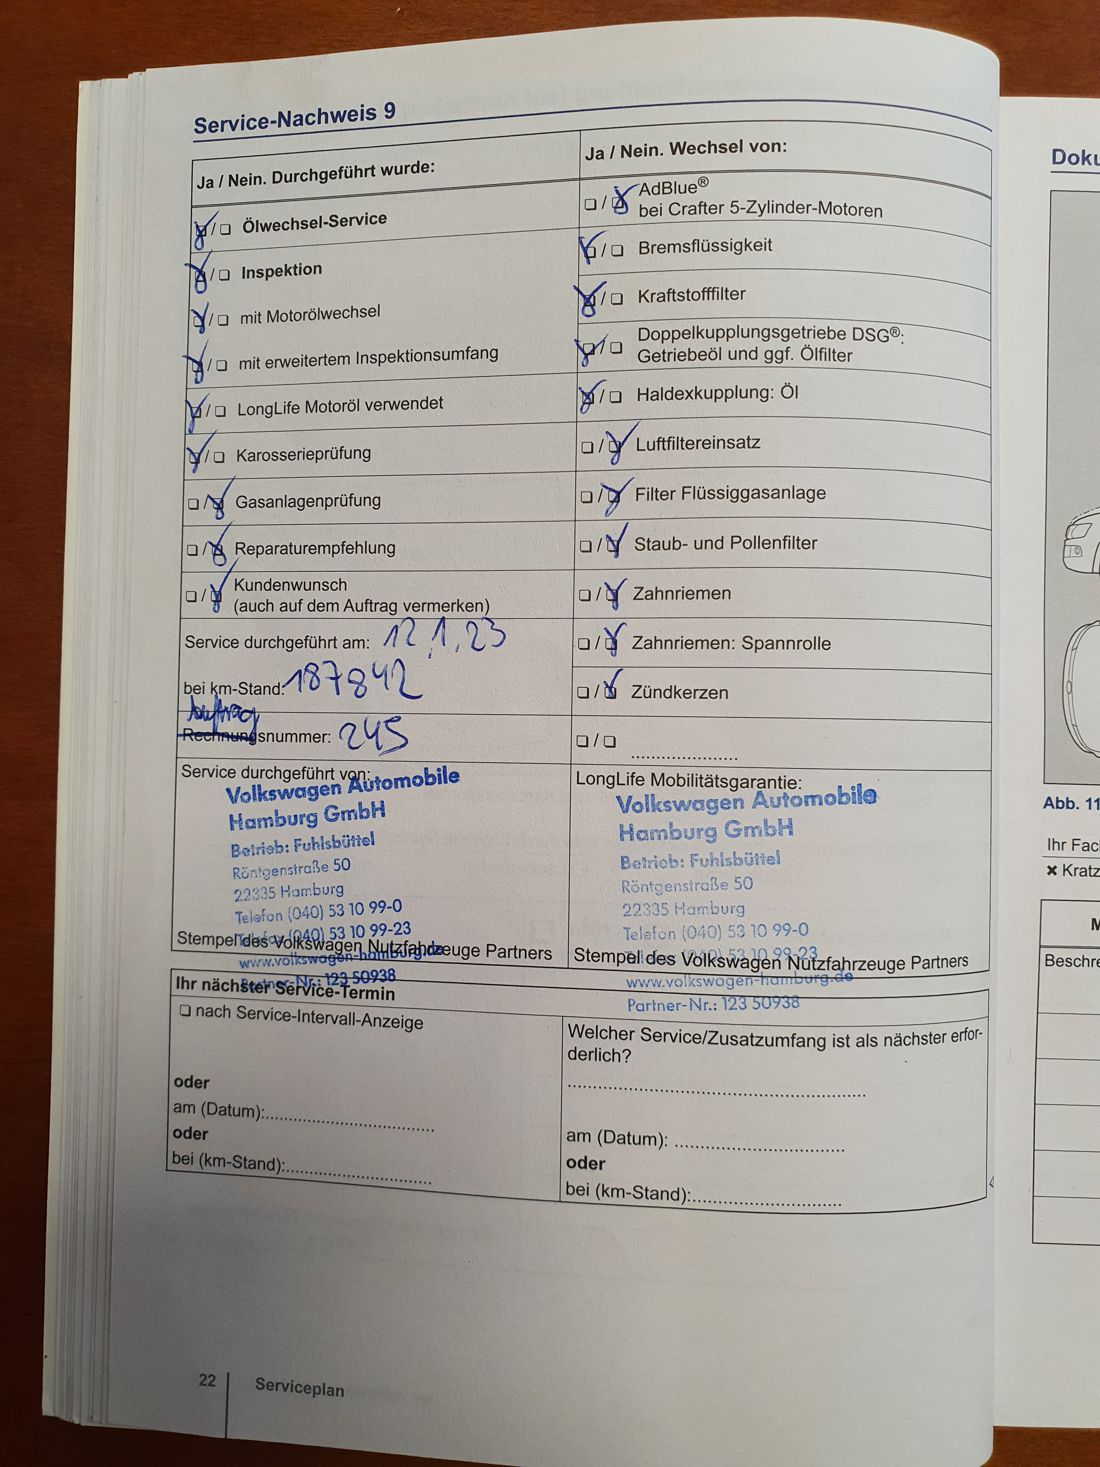 Service-Nachweis 9
Ja / Nein. Durchgeführt wurde:
☒/❏ Ölwechsel-Service
☒/❏ Inspektion
☒/❏ mit Motorölwechsel
☒/❏ mit erweitertem Inspektionsumfang
☒/❏ LongLife Motoröl verwendet
☒/❏ Karosserieprüfung
❏/☒ Gasanlagenprüfung
❏/☒ Reparaturempfehlung
❏/☒ Kundenwunsch
(auch auf dem Auftrag vermerken)
Service durchgeführt am: 12.1.23
bei km-Stand: 187842
Auftrag
Rechnungsnummer: 245
Service durchgeführt von:
Volkswagen Automobile
Hamburg GmbH
Betrieb: Fuhlsbüttel
Röntgenstraße 50
22335 Hamburg
Telefon (040) 53 10 99-0
Telefax (040) 53 10 99-23
Stempel des Volkswagen Nutzfahrzeuge Partners
www.volkswagen-hamburg.de
Partner-Nr.: 123 50938
Ja / Nein. Wechsel von:
❏/☒ AdBlue®
bei Crafter 5-Zylinder-Motoren
☒/❏ Bremsflüssigkeit
☒/❏ Kraftstofffilter
☒/❏ Doppelkupplungsgetriebe DSG®:
Getriebeöl und ggf. Ölfilter
☒/❏ Haldexkupplung: Öl
❏/☒ Luftfiltereinsatz
❏/☒ Filter Flüssiggasanlage
❏/☒ Staub- und Pollenfilter
❏/☒ Zahnriemen
❏/☒ Zahnriemen: Spannrolle
❏/☒ Zündkerzen
❏/❏ ....................
LongLife Mobilitätsgarantie:
Volkswagen Automobile
Hamburg GmbH
Betrieb: Fuhlsbüttel
Röntgenstraße 50
22335 Hamburg
Telefon (040) 53 10 99-0
Telefax (040) 53 10 99-23
Stempel des Volkswagen Nutzfahrzeuge Partners
www.volkswagen-hamburg.de
Partner-Nr.: 123 50938
Ihr nächster Service-Termin
❏ nach Service-Intervall-Anzeige
oder
am (Datum):................................
oder
bei (km-Stand):............................
Welcher Service/Zusatzumfang ist als nächster erfor-
derlich?
........................................................
am (Datum): ................................
oder
bei (km-Stand):............................
22
Serviceplan
Doku
Abb. 11
Ihr Fac
✖ Kratz
M
Beschre